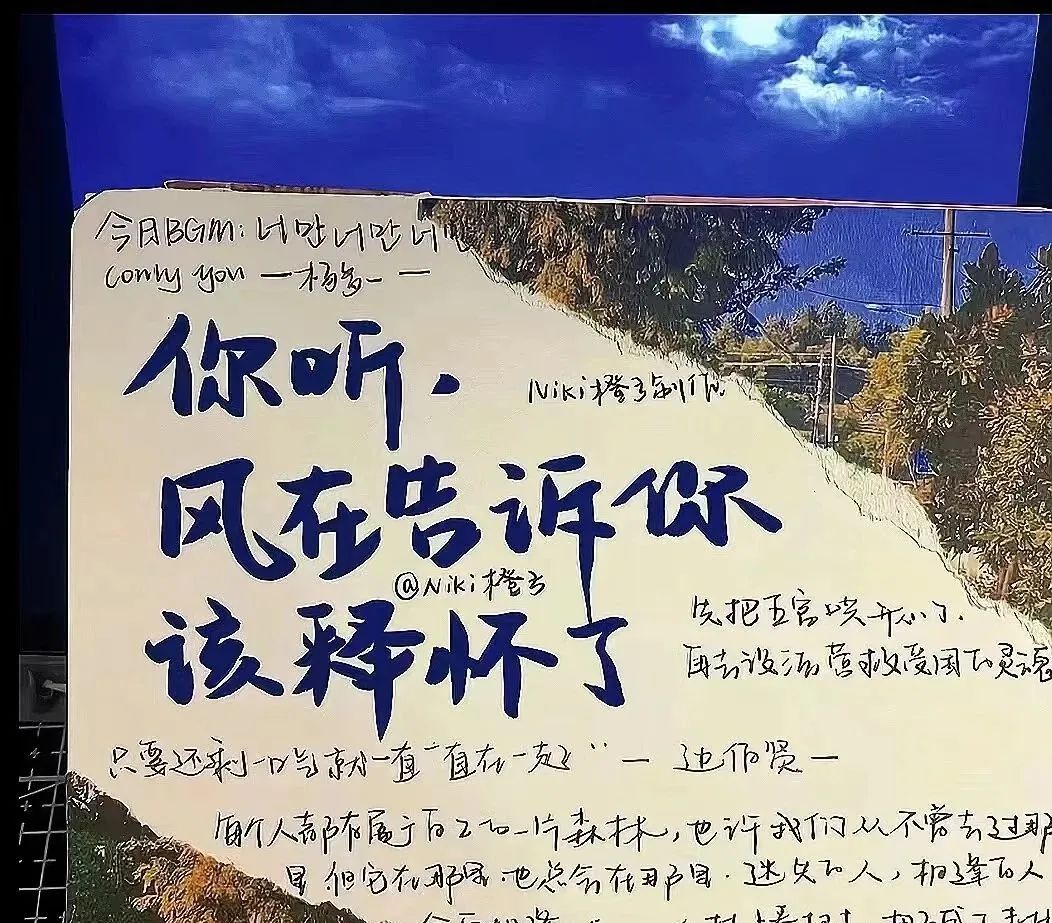 今日BGM: 너만 너만 너만
(only you — 杨多一 —
你听.
Niki橙子制作
风在告诉你
@Niki橙子
该释怀了
先把五官哄开心了.
再去设法营救受困的灵魂
只要还剩一口气就一直"直在一起" — 边伯贤 —
每个人都有属于自己的一片森林,也许我们从不曾去过那
里 但它在那里.也总会在那里.迷失的人,相逢的人